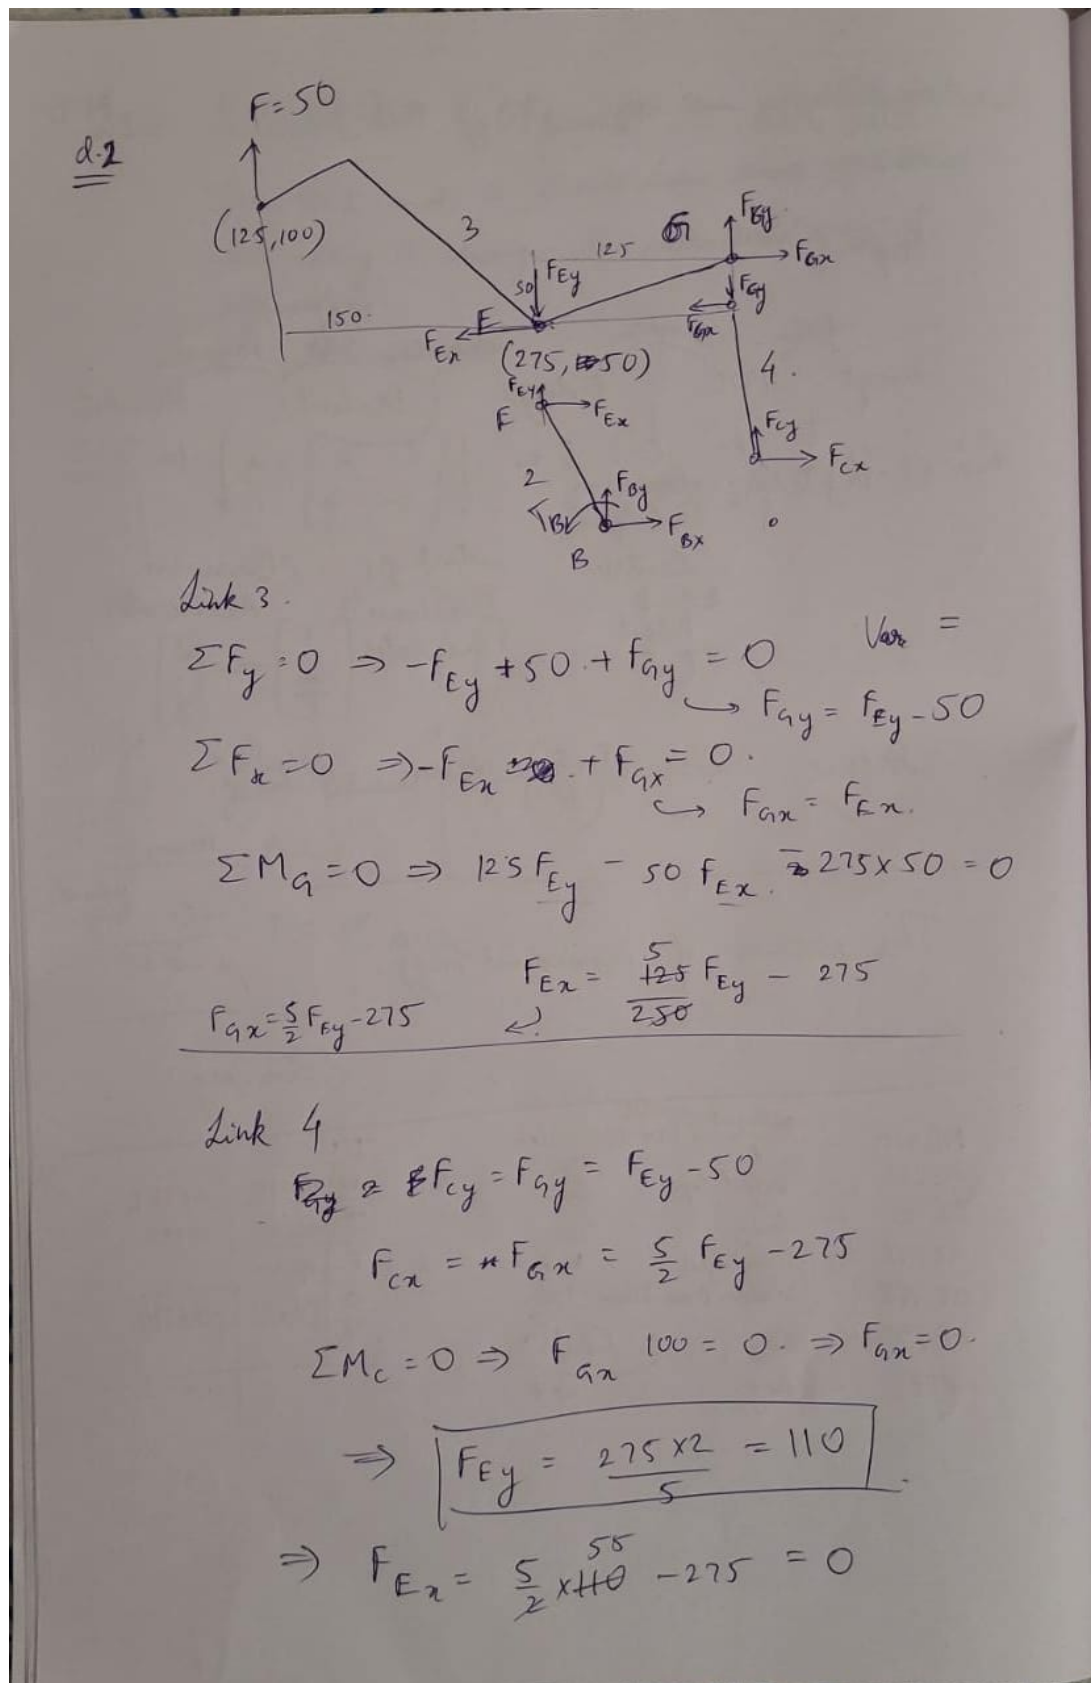 F=50
Q.2
(125,100)
3
125
G
F_Gy
F_Gx
50
F_Ey
F_Gy
150
E
F_Ex
F_Gx
(275, 50)
4.
F_Ey
E
F_Ex
F_Cy
F_Cx
2
F_By
T_B
F_Bx
B
Link 3.
ΣF_y=0 ⇒ -F_Ey +50 + F_Gy = 0
Var =
↳ F_Gy = F_Ey - 50
ΣF_x=0 ⇒ -F_Ex + F_Gx = 0.
↳ F_Gx = F_Ex.
ΣM_G=0 ⇒ 125 F_Ey - 50 F_Ex - 275×50 = 0
F_Ex = 5/2 F_Ey - 275
F_Gx = 5/2 F_Ey - 275
Link 4
F_Cy = F_Gy = F_Ey - 50
F_Cx = F_Gx = 5/2 F_Ey - 275
ΣM_C = 0 ⇒ F_Gx 100 = 0. ⇒ F_Gx = 0.
⇒ F_Ey = 275×2/5 = 110
⇒ F_Ex = 5/2 × 110 55 - 275 = 0